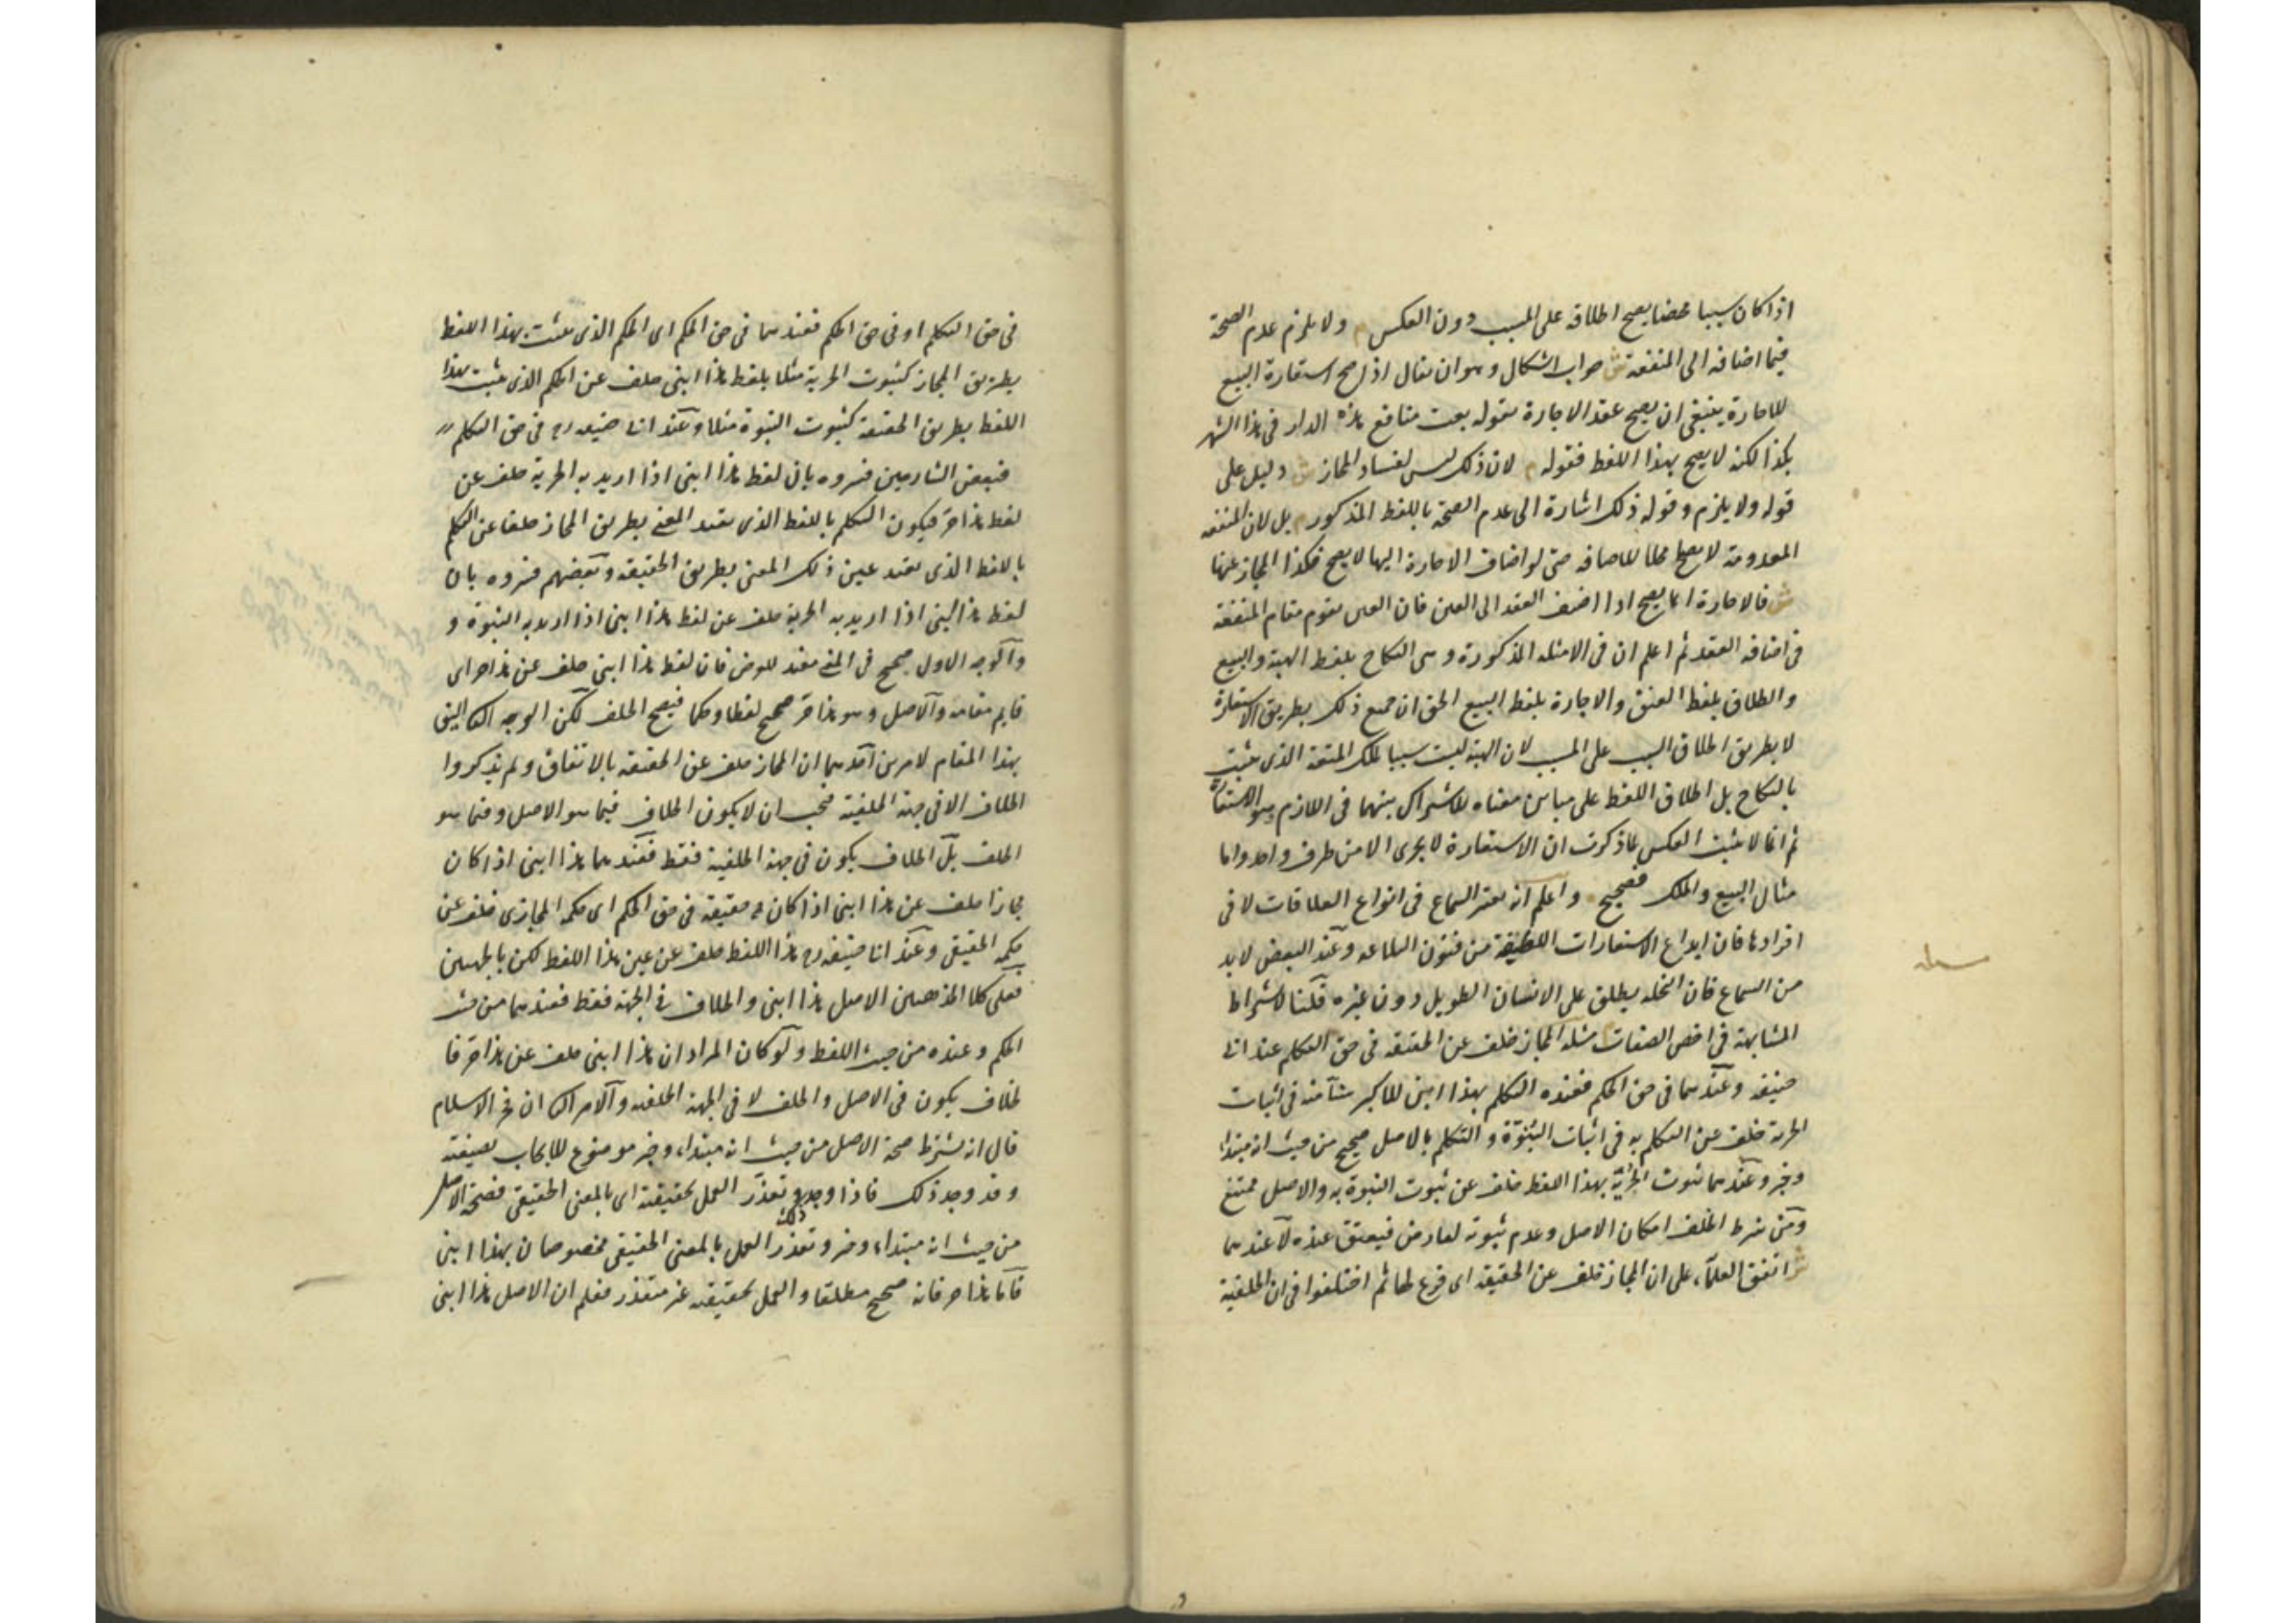 اذا كان سببا محضا يصح اطلاقه على المسبب دون العكس م ولا يلزم عدم الصحة
فيما اضافه الى المنفعة ش جواب اشكال وهو ان يقال اذا صح استعارة البيع
للاجارة ينبغى ان يصح عقد الاجارة بقوله بعت منافع هذه الدار فى هذا الشهر
بكذا لكنه لا يصح بهذا اللفظ فقوله م لان ذلك ليس لفساد المجاز ش دليل على
قوله ولا يلزم وقوله ذلك اشارة الى عدم الصحة باللفظ المذكور م بل لان المنفعة
المعدومة لا تصلح محلا للاضافة حتى لو اضاف الاجارة اليها لا يصح فكذا المجاز عنها
ش فالاجارة انما يصح اذا اضيف العقد الى العين فان العين يقوم مقام المنفعة
فى اضافة العقد ثم اعلم ان فى الامثلة المذكورة وهى النكاح بلفظ الهبة والبيع
والطلاق بلفظ العتق والاجارة بلفظ البيع الحق ان جميع ذلك بطريق الاستعارة
لا بطريق اطلاق السبب على المسبب لان الهبة ليست سببا لملك المتعة الذى يثبت
بالنكاح بل اطلاق اللفظ على مباين معناه للاشتراك بينهما فى اللازم وهو الاستعارة
ثم انما لا يثبت العكس لما ذكرت ان الاستعارة لا يجرى الا من طرف واحد واما
مثال البيع والملك فصحيح واعلم انه يعتبر السماع فى انواع العلاقات لا فى
افرادها فان ابداع الاستعارات اللطيفة من فنون البلاغه وعند البعض لا بد
من السماع فان النخلة يطلق على الانسان الطويل دون غيره قلنا لاشتراط
المشابهة فى اخص الصفات مسئلة المجاز خلف عن الحقيقه فى حق التكلم عند ابى
حنيفه وعندهما فى حق الحكم فعنده التكلم بهذا ابنى للاكبر سنا منه فى اثبات
الحرية خلف عن التكلم به فى اثبات البنوة والتكلم بالاصل صحيح من حيث انه مبتدا
وخبر وعندهما ثبوت الحرية بهذا اللفظ خلف عن ثبوت البنوة به والاصل ممتنع
ومن شرط الخلف امكان الاصل وعدم ثبوته لعارض فيعتق عنده لا عندهما
ش اتفق العلماء على ان المجاز خلف عن الحقيقه اى فرع لها ثم اختلفوا فى ان الخلفية
فى حق التكلم او فى حق الحكم فعندهما فى حق الحكم اى الحكم الذى يثبت بهذا اللفظ
بطريق المجاز كثبوت الحرية مثلا بلفظ هذا ابنى خلف عن الحكم الذى يثبت بهذا
اللفظ بطريق الحقيقة كثبوت البنوة مثلا وعند ابى حنيفه رح فى حق التكلم
فبعض الشارحين فسروه بان لفظ هذا ابنى اذا اريد به الحرية خلف عن
لفظ هذا حر فيكون التكلم باللفظ الذى يفيد المعنى بطريق المجاز خلفا عن التكلم
باللفظ الذى يفيد عين ذلك المعنى بطريق الحقيقه وبعضهم فسروه بان
لفظ هذا ابنى اذا اريد به الحرية خلف عن لفظ هذا ابنى اذا اريد به البنوة و
والوجه الاول صحيح فى المعنى مفيد للغرض فان لفظ هذا ابنى خلف عن هذا حر اى
قايم مقامه والاصل وهو هذا حر صحيح لفظا وحكما فيصح الخلف لكن الوجه الثانى اليق
بهذا المقام لامرين احدهما ان المجاز خلف عن الحقيقه بالاتفاق ولم يذكروا
الخلاف الا فى جهة الخلفية فيجب ان لا يكون الخلاف فيما هو الاصل وفيما هو
الخلف بل الخلاف يكون فى جهة الخلفية فقط فعندهما هذا ابنى اذا كان
مجازا خلف عن هذا ابنى اذا كان حقيقه فى حق الحكم اى حكمه المجازى خلف عن
حكمه الحقيقى وعند ابى حنيفه رح هذا اللفظ خلف عن عين هذا اللفظ لكن بالجهتين
فعلى كلا المذهبين الاصل هذا ابنى والخلاف فى الجهة فقط فعندهما من حيث
الحكم وعنده من حيث اللفظ ولو كان المراد ان هذا ابنى خلف عن هذا حر فا
لخلاف يكون فى الاصل والخلف لا فى الجهة الخلفيه والامر الثانى ان فخر الاسلام
قال انه يشترط صحة الاصل من حيث انه مبتداء وخبر موضوع للايجاب بصيغته
وقد وجد ذلك فاذا وجد وتعذر العمل بحقيقته اى بالمعنى الحقيقى فصحة الاصل
من حيث انه مبتداء وخبر وتعذر العمل بالمعنى الحقيقى مخصوصان بهذا ابنى
فاما هذا حر فانه صحيح مطلقا والعمل بحقيقته غير متعذر فعلم ان الاصل هذا ابنى